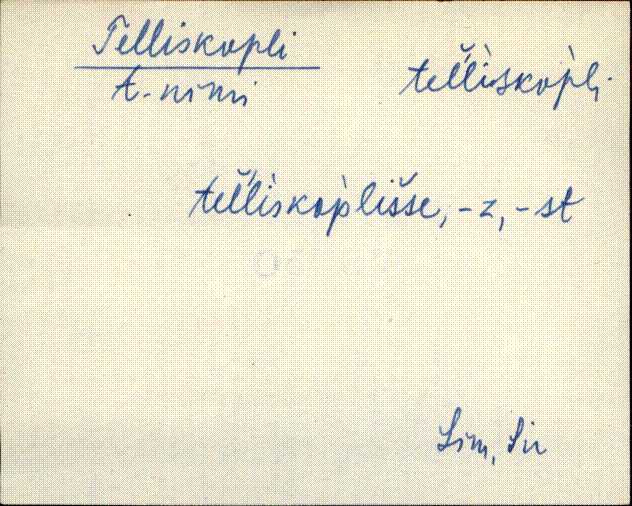 Telliskopli
t.-nimi
tel̆lìskop̀li
tel̆lìskop̀lis̆se, -z, -st
Sim, Sir